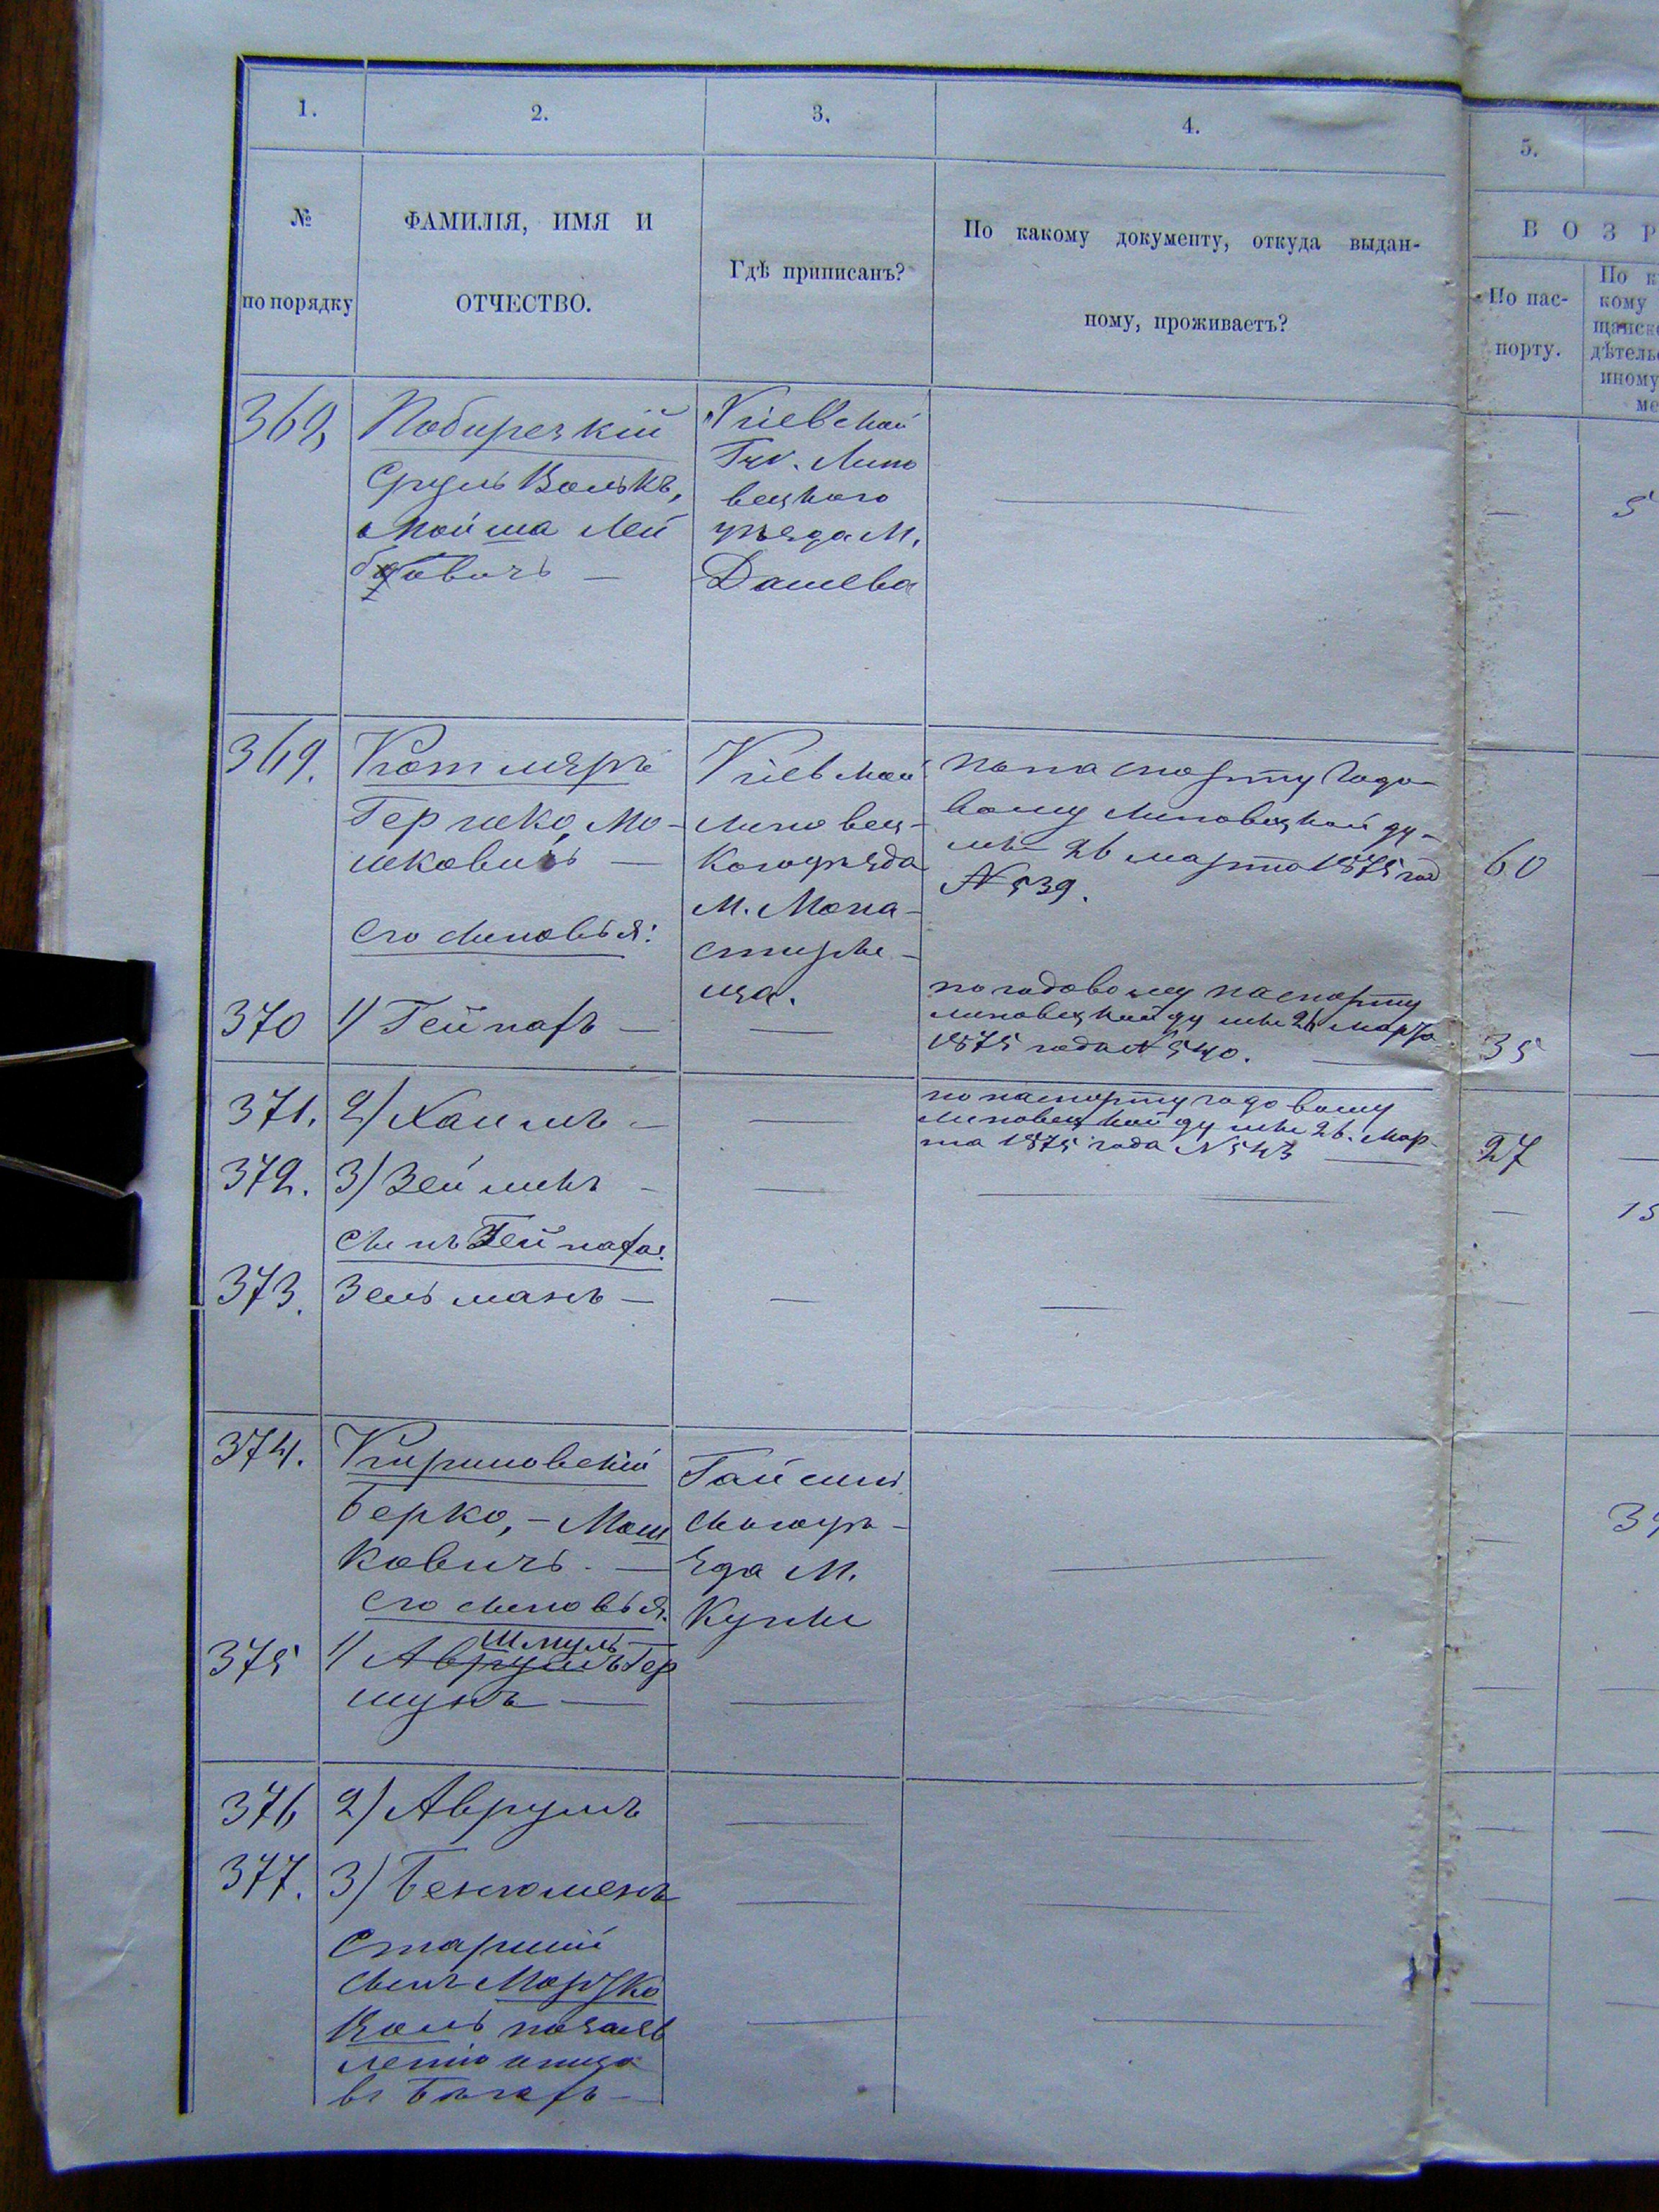 1.
2.
3.
4.
5.
№
по порядку
ФАМИЛІЯ, ИМЯ И
ОТЧЕСТВО.
Гдѣ приписанъ?
По какому документу, откуда выдан-
ному, проживаетъ?
ВОЗР
По пас-
порту.
По к
кому
щанск
дѣтель
иному
ме
368,
Побирезкій
Сруль Волькъ,
Мойша Лей
бовичъ —
Кіевской
Губ. Липо
вецкаго
уѣзда М.
Дашева
—
5
369.
Котляръ
Гершко, Мо-
шковичъ —
Его сыновья:
Кіевской
Липовец-
кого уѣзда
М. Мона-
стыри-
ща.
по паспорту годо-
вому Липовецкой ду-
мы 26 марта 1875 год
№ 539.
60
370
1) Гейнахъ —
—
по годовому паспорту
Липовецкой думы 26 марта
1875 года № 540.
35
371.
2) Хаимъ —
—
по паспорту годовому
Липовецкой думы 26. Мар-
та 1875 года № 543
27
372.
3) Зейликъ —
—
—
15
сынъ Гейнаха.
373.
Зельманъ —
—
—
374.
Кириновскій
Берко, — Мош
ковичъ. —
Его сыновья.
Гайсин
скаго уѣ-
зда М.
Куны
—
375
1) Аврумъ Гер
Шмуль
шунъ —
—
376
2) Аврумъ
—
—
377.
3) Бенюменъ
—
—
Старшій
сынъ Мордко
Іоль по заяв
ленію отца
въ бѣгахъ —
—